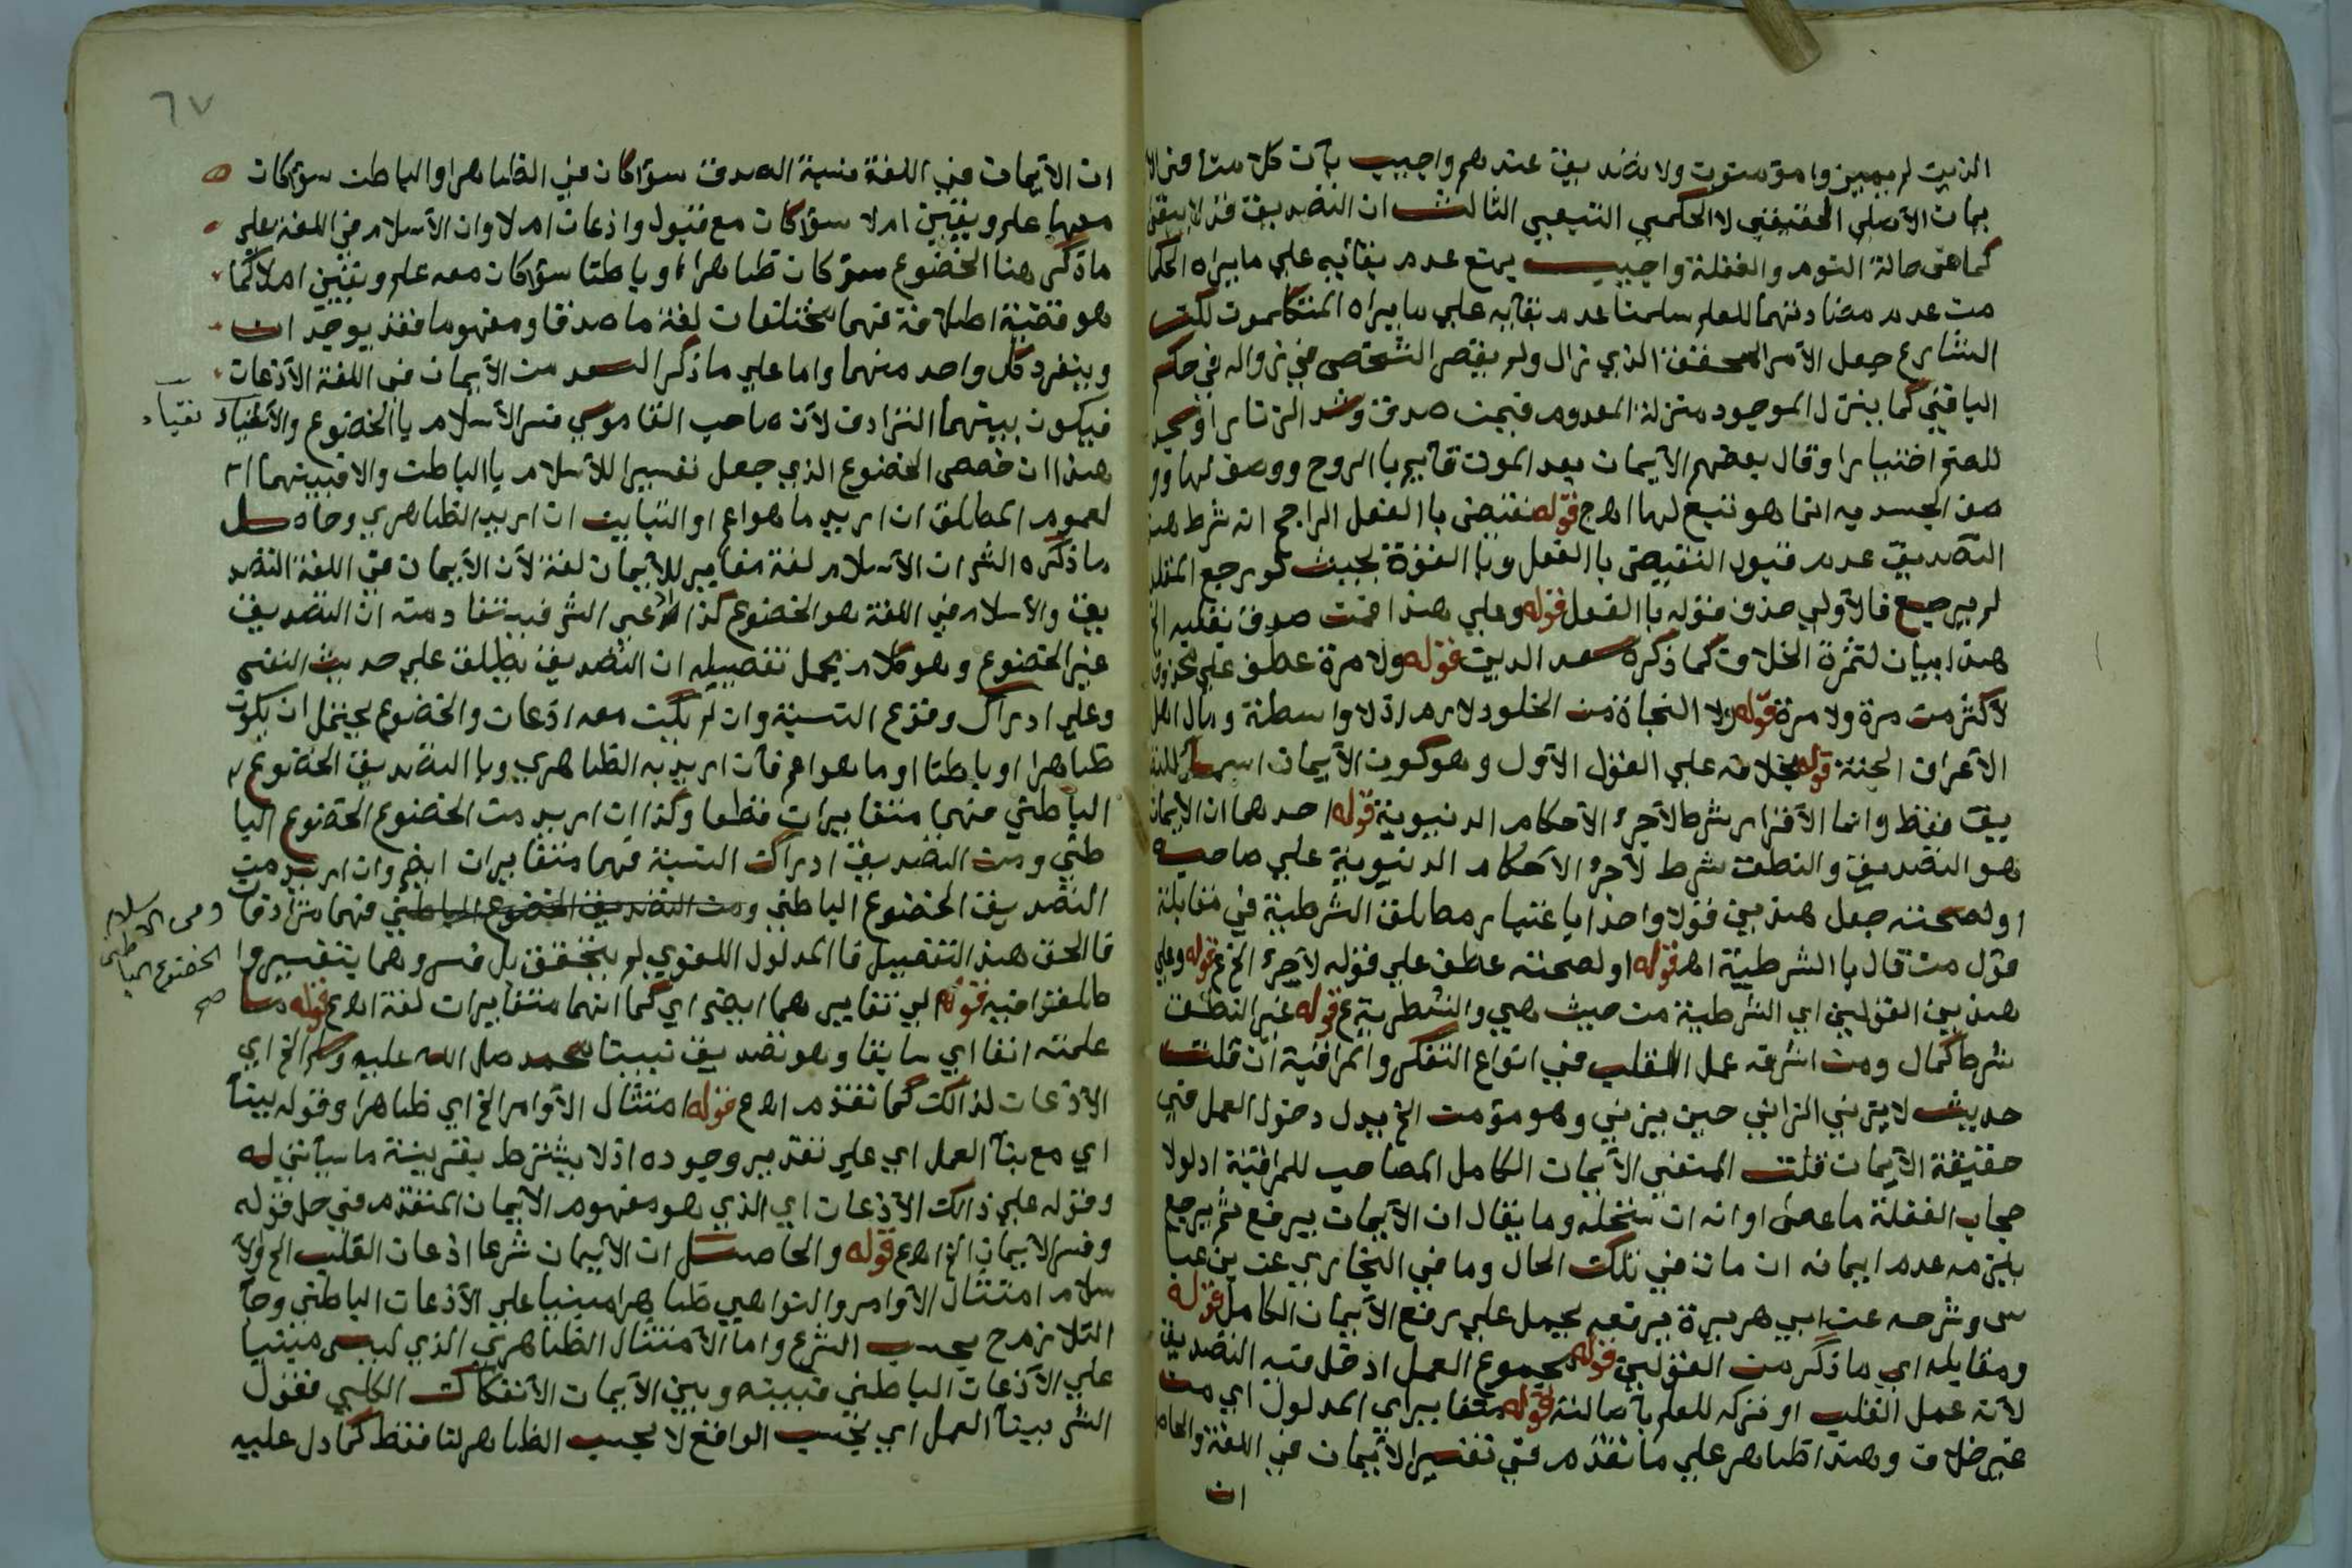 الذين لم يميزوا مؤمنون ولا تصديق عندهم واجيب بان كلامنا في الا
يمان الاصلي الحقيقي لا الحكمي التبعي الثالث ان التصديق قد لا يبقى
كما في حالة النوم والغفلة واجيب يمنع عدم بقائه على ما يراه الحكما
من عدم مضادتهما للعلم سلمنا عدم بقائه على ما يراه المتكلمون لكن
الشارع جعل الامر المحقق الذي زال ولم يقصر الشخص في زواله في حكم
الباقي كما ينزل الموجود منزلة المعدوم فيمن صدق وشد الزنار او سجد
للصنم اختيارا وقال بعضهم الايمان بعد الموت قائم بالروح ووصف لها وو
صف الجسد به انما هو تبع لها اهـ ج قوله نقتضى باالفعل الراجح انه شرط هذ
التصديق عدم قبول النقيض باالفعل وباالقوة بحيث لو رجع المقلد
لم يرجع فالأولى حذف قوله باالفعل قوله وعلى هذا فمن صدق بقلبه الخ
هذا بيان لثمرة الخلاف كما ذكره سعد الدين قوله ولا مرة عطف على محذوف
لاكثر من مرة ولا مرة قوله ولا النجاة من الخلود لازم اذ لا واسطة ومآل اهل
الاعراف الجنة قوله بخلافه على القول الاول وهو كون الايمان اسما للتصد
يق فقط وانما الاقرار شرط لاجرء الاحكام الدنيوية قوله احدهما ان الايمان
هو التصديق والنطق شرط لاجرء الاحكام الدنيوية على صاحبه
او لصحته جعل هذين قولا واحدا باعتبار مطلق الشرطية في مقابلة
قول من قال باالشرطية اهـ قوله او لصحته عطف على قوله لاجرء الخ ع قوله وعلى
هذين القولين اي الشرطية من حيث هي والشطرية ع قوله غير النطق
شرط كمال ومن اشرفه عمل القلب في انواع التفكر والمراقبة ان قلت
حديث لا يزني الزاني حين يزني وهو مؤمن الخ يدل دخول العمل في
حقيقة الايمان قلت المنفي الايمان الكامل المصاحب للمراقبة اذ لولا
حجاب الغفلة ما عصى او انه ان استحله وما يقال ان الايمان يرفع ثم يرجع
يلزمه عدم ايمانه ان مات في تلك الحال وما في البخاري عن بن عبا
س وشرحه عن ابي هريرة يرفعه يحمل على رفع الايمان الكامل قوله
ومقابله اي ما ذكر من القولين قوله مجموع العمل ادخل فيه التصديق
لانه عمل القلب او تركه للعلم باصالته قوله متغايراي المدلول اي من
غير خلاف وهذا ظاهر على ما تقدم في تفسير الايمان في اللغة والحاصل
ان
٦٧
ان الايمان في اللغة نسبة الصدق سواكان في الظاهراوالباطن سواكان
معها علم ويقين ام لا سواكان مع قبول واذعان ام لا وان الاسلام في اللغة على
ما ذكر هنا الخضوع سواكان ظاهرا او باطنا سواكان معه علم ويقين ام لا كما
هو قضية اطلاقه فهما مختلفان لغة ماصدقا ومفهوما فقد يوجدان
وينفرد كل واحد منهما واما على ما ذكر السعد من الايمان في اللغة الاذعان
فيكون بينهما الترادف لان صاحب القاموس فسر الاسلام باالخضوع والانقياد
نقياد
هذا ان خصص الخضوع الذي جعل تفسيرا للاسلام باالباطن والا فبينهما ا
لعموم المطلق ان اريد ما هو اعم او التباين ان اريد الظاهري وحاصل
ما ذكره الشر ان الاسلام لغة مغاير للايمان لغة لان الايمان في اللغة التصد
يق والاسلام في اللغة هو الخضوع كذا عبر الشر فيستفاد منه ان التصديق
غير الخضوع وهو كلام مجمل تفصيله ان التصديق يطلق على حديث النفس
وعلى ادراك وقوع النسبة وان لم يكن معه اذعان والخضوع يحتمل ان يكون
ظاهرا او باطنا او ما هو اعم فان اريد به الظاهري وباالتصديق الخضوع
الباطني فهما متغايران قطعا وكذا ان اريد من الخضوع الخضوع البا
طني ومن التصديق ادراك النسبة فهما متغايران ايض وان اريد من
التصديق الخضوع الباطني ومن التصديق الخضوع الباطني فهما مترادفان
ومن الاسلام
الخضوع الباطني
صح
فالحق هذا التفصيل فاالمدلول اللغوي لم يتحقق بل فسروهما بتفسير وا
طلقوا فيه قوله لي تغايرهما ايض اي كما انهما متغايران لغة اهـ ع قوله ما
علمته انفا اي سابقا وهو تصديق نبينا محمد صلى الله عليه وسلم الخ اي
الاذعان لذالك كما تقدم اهـ ع قوله امتثال الاوامر الخ اي ظاهرا وقوله بينآ
اي مع بنآ العمل اي على تقدير وجوده اذ لا يشترط بقرينة ما سيأتي له
وقوله على ذالك الاذعان اي الذي هو مفهوم الايمان المتقدم في حل قوله
وفسر الايمان الخ اهـ ع قوله والحاصل ان الايمان شرعا اذعان القلب الخ والا
سلام امتثال الاوامر والنواهي ظاهرا مبنيا على الاذعان الباطني وحآ
التلازم ح بحسب الشرع واما الامتثال الظاهري الذي ليس مبنيا
على الاذعان الباطني فبينه وبين الايمان الانفكاك الكلي فقول
الشر بينآ العمل اي بحسب الواقع لا بحسب الظاهر لنا فقط كما دل عليه